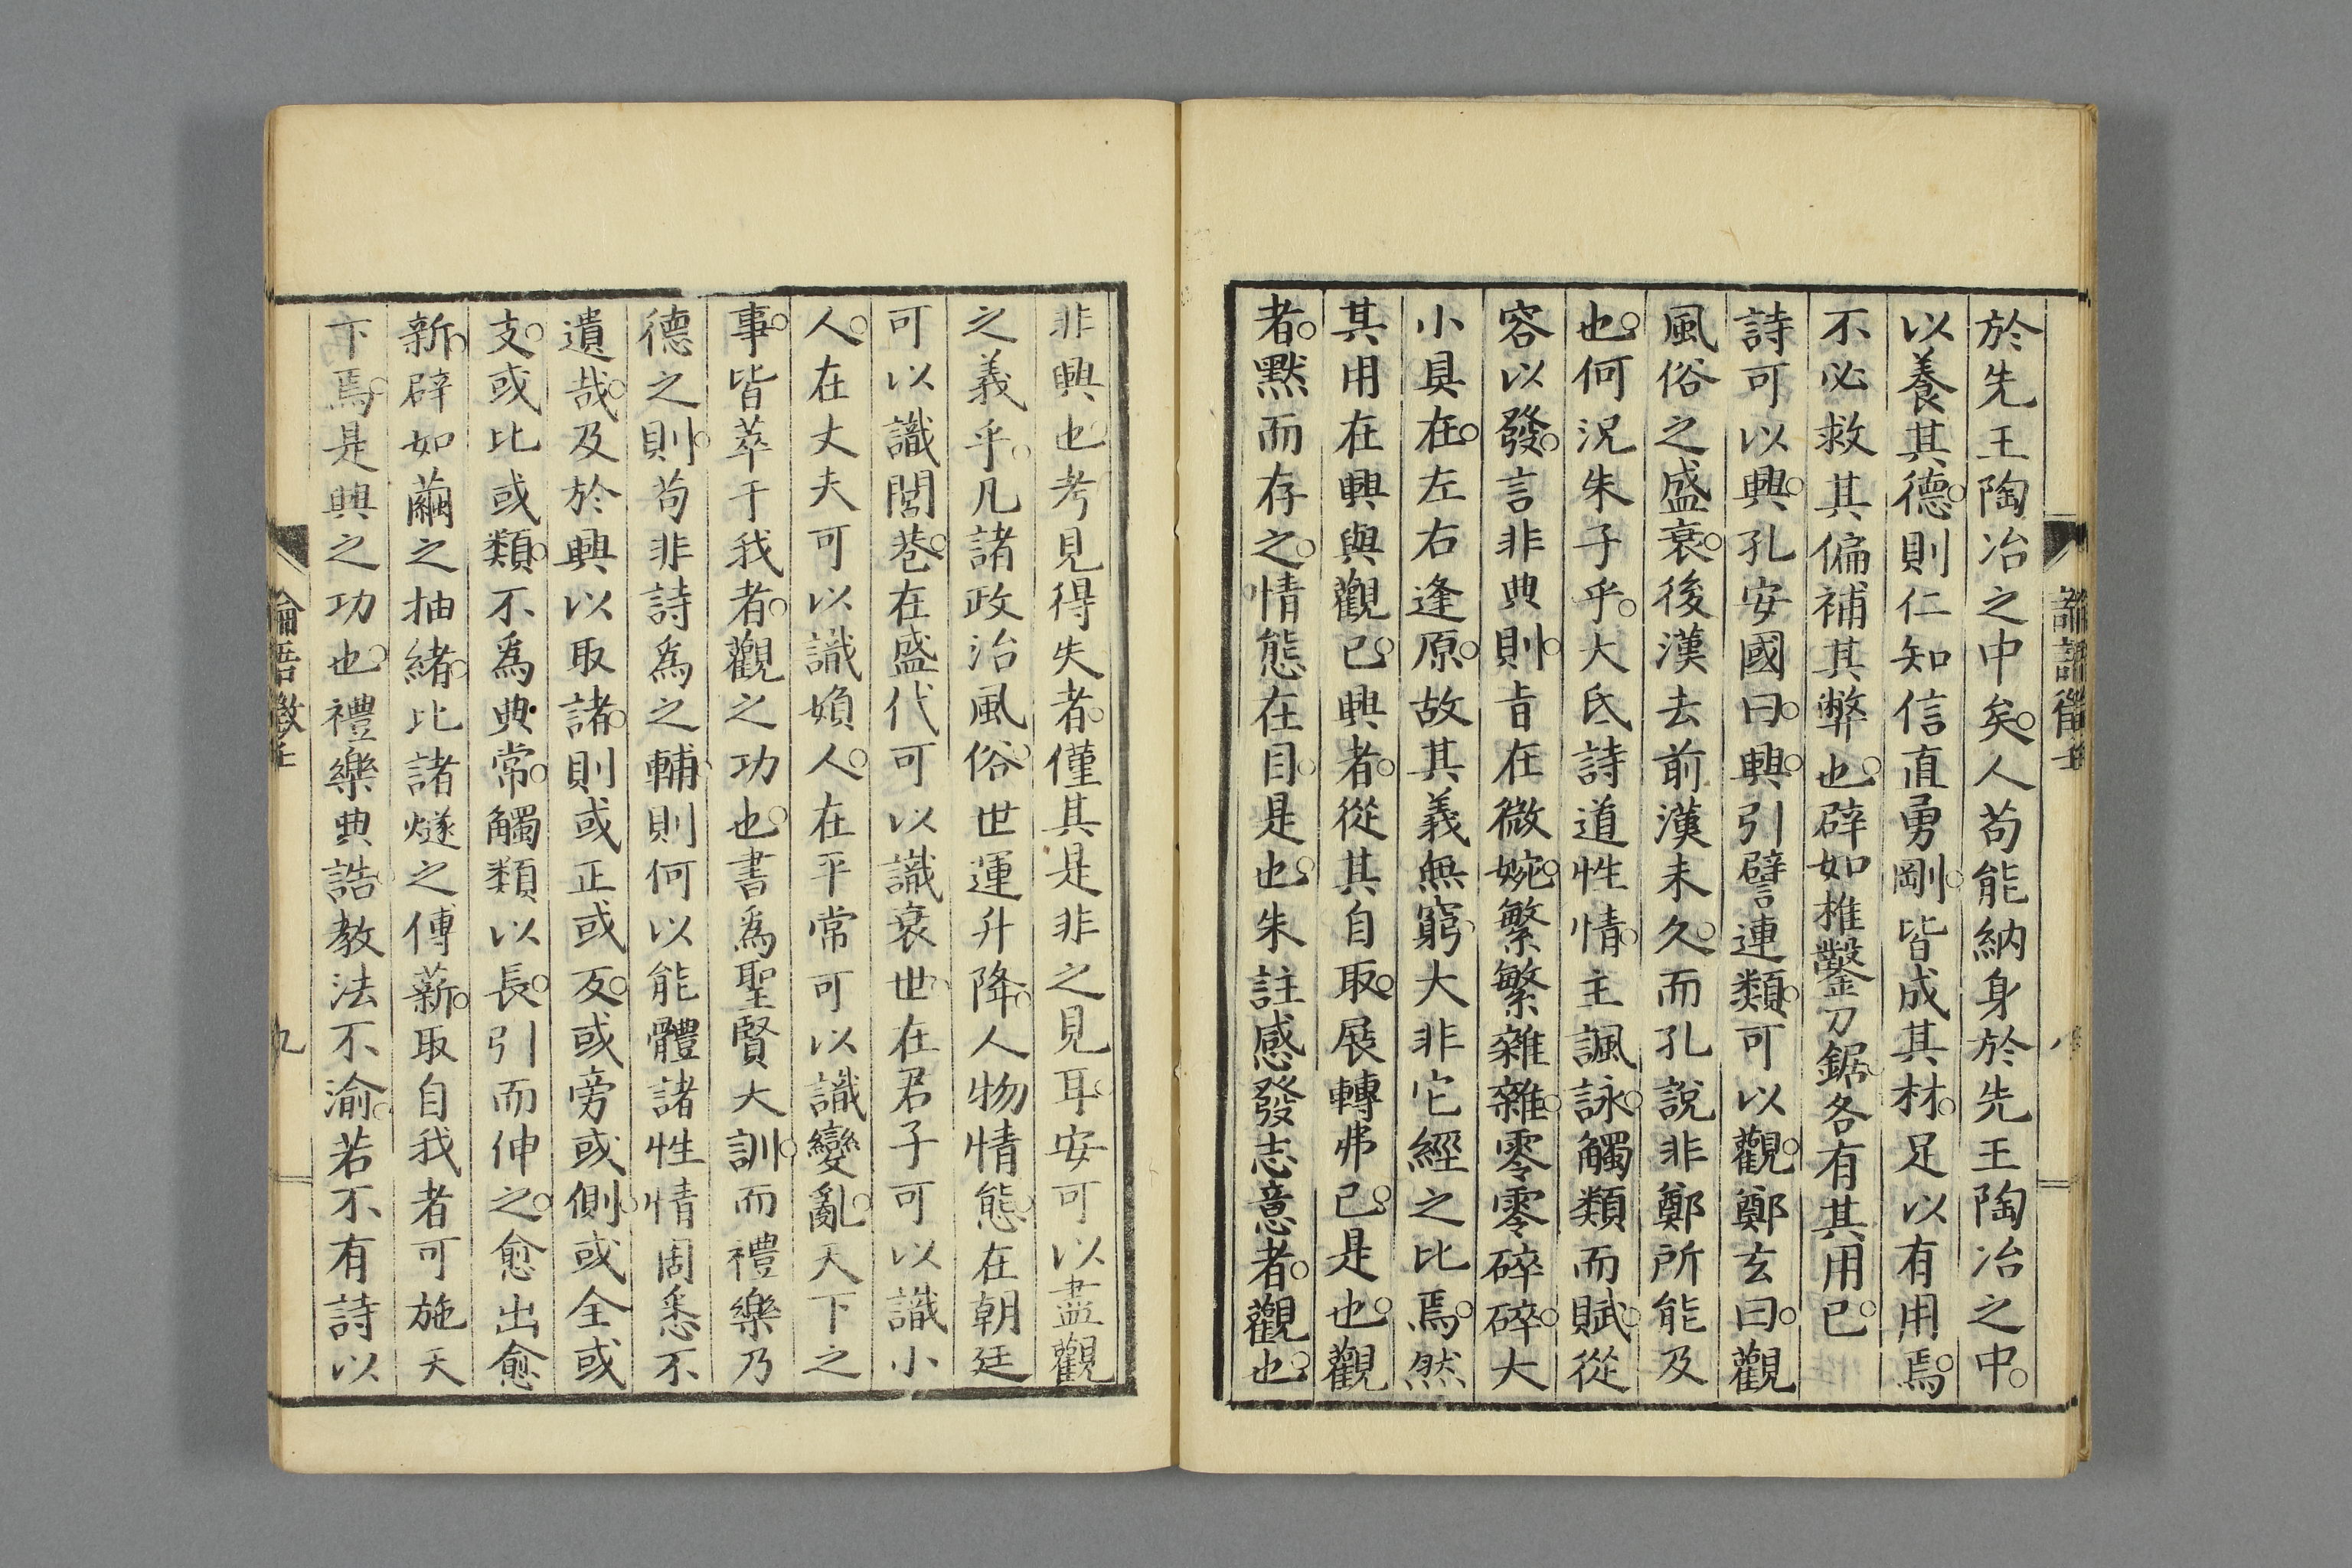 論語徵壬
八
於先王陶冶之中矣。人苟能納身於先王陶冶之中。
以養其德。則仁知信直勇剛。皆成其材。足以有用焉。
不必救其偏補其弊也。辟如椎鑿刀鋸。各有其用已。
詩可以興。孔安國曰。興。引譬連類。可以觀。鄭玄曰。觀
風俗之盛衰。後漢去前漢未久。而孔說非鄭所能及
也。何況朱子乎。大氐詩道性情。主諷詠。觸類而賦。從
容以發。言非典則。旨在微婉。繁繁雜雜。零零碎碎。大
小具在。左右逢原。故其義無窮。大非它經之比焉。然
其用在興與觀已。興者。從其自取。展轉弗已。是也。觀
者。默而存之。情態在目。是也。朱註感發志意者。觀也。
非興也。考見得失者。僅其是非之見耳。安可以盡觀
之義乎。凡諸政治風俗。世運升降。人物情態。在朝廷
可以識閭巷。在盛代可以識衰世。在君子可以識小
人。在丈夫可以識媍人。在平常可以識變亂。天下之
事。皆萃于我者。觀之功也。書為聖賢大訓。而禮樂乃
德之則。苟非詩為之輔。則何以能體諸性情周悉不
遺哉。及於興以取諸。則或正或反。或旁或側。或全或
支。或比或類。不為典常。觸類以長。引而伸之。愈出愈
新。辟如繭之抽緒。比諸燧之傳薪。取自我者可施天
下焉。是興之功也。禮樂典誥。教法不渝。若不有詩以
論語徵壬
九